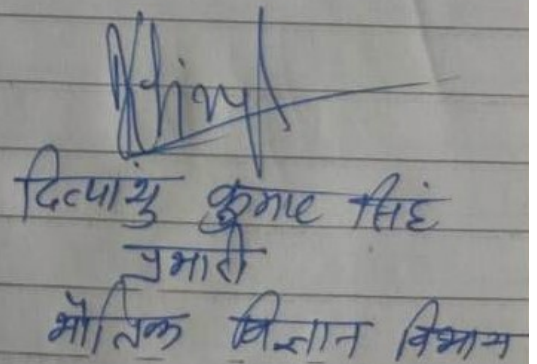 दिव्यांशु कुमार सिंह
प्रभारी
भौतिक विज्ञान विभाग